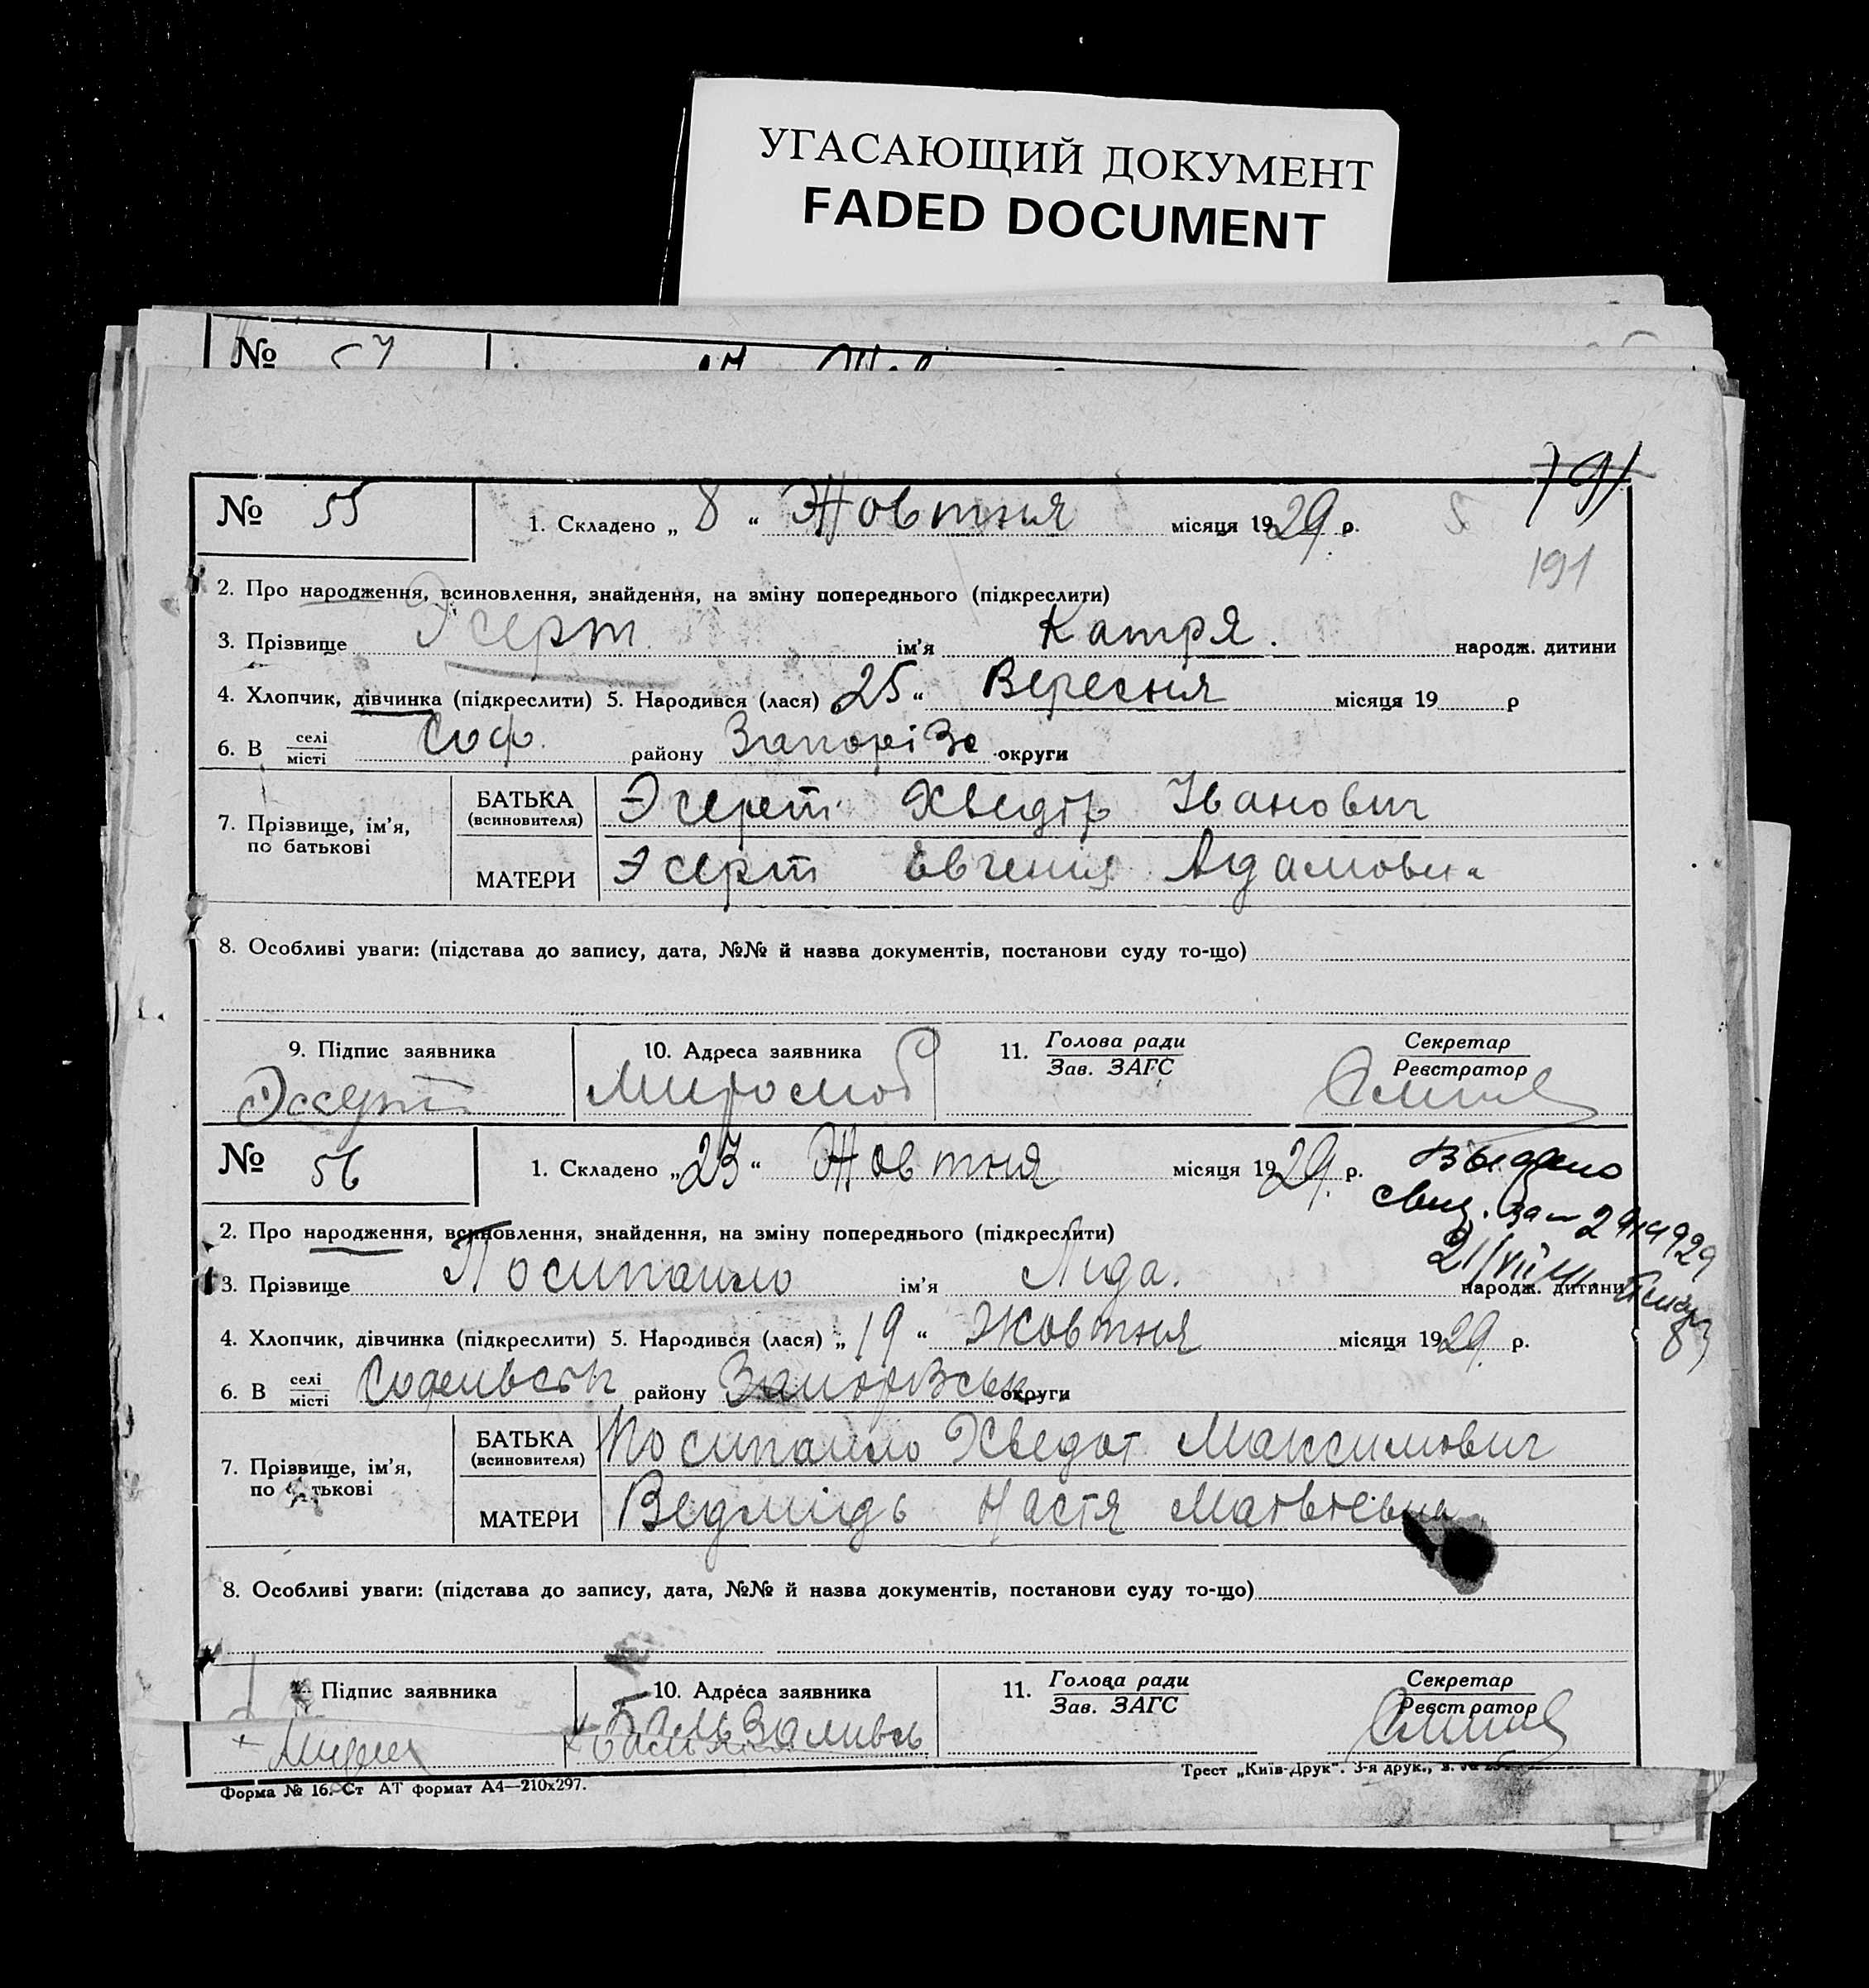 УГАСАЮЩИЙ ДОКУМЕНТ
FADED DOCUMENT
№ 57
191
№ 55
1. Складено „ 8 “ Жовтня місяця 1929 р.
191
2. Про народження, всиновлення, знайдення, на зміну попереднього (підкреслити)
3. Прізвище Эсерт ім’я Катря. народж. дитини
4. Хлопчик, дівчинка (підкреслити) 5. Народився (лася) 25 “ Вересня місяця 19 р
6. В селі/місті Соф. району Запоріз. округи
7. Прізвище, ім’я, по батькові
БАТЬКА (всиновителя) Эсерт Хведір Іванович
МАТЕРИ Эсерт Євгенія Адамовн
8. Особливі уваги: (підстава до запису, дата, №№ й назва документів, постанови суду то-що)
9. Підпис заявника
10. Адреса заявника
11. Голова ради Зав. ЗАГС
Секретар Реєстратор
Эссерт
№ 56
1. Складено „ 23 “ Жовтня місяця 1929. р.
Выдано
свид. за
2. Про народження, всиновлення, знайдення, на зміну попереднього (підкреслити)
21/VII
3. Прізвище Посипайло ім’я Ліда. народж. дитини
4. Хлопчик, дівчинка (підкреслити) 5. Народився (лася) „ 19 “ Жовтня місяця 1929. р.
6. В селі/місті району Запорізськ округи
7. Прізвище, ім’я, по батькові
БАТЬКА (всиновителя) Посипайло Хведот Максимович
МАТЕРИ Ведмідь Настя Матвіевна
8. Особливі уваги: (підстава до запису, дата, №№ й назва документів, постанови суду то-що)
Підпис заявника
10. Адреса заявника
11. Голова ради Зав. ЗАГС
Секретар Реєстратор
Форма № 16. Ст АТ формат А4—210х297.
Трест „Київ-Друк“. 3-я друк.,